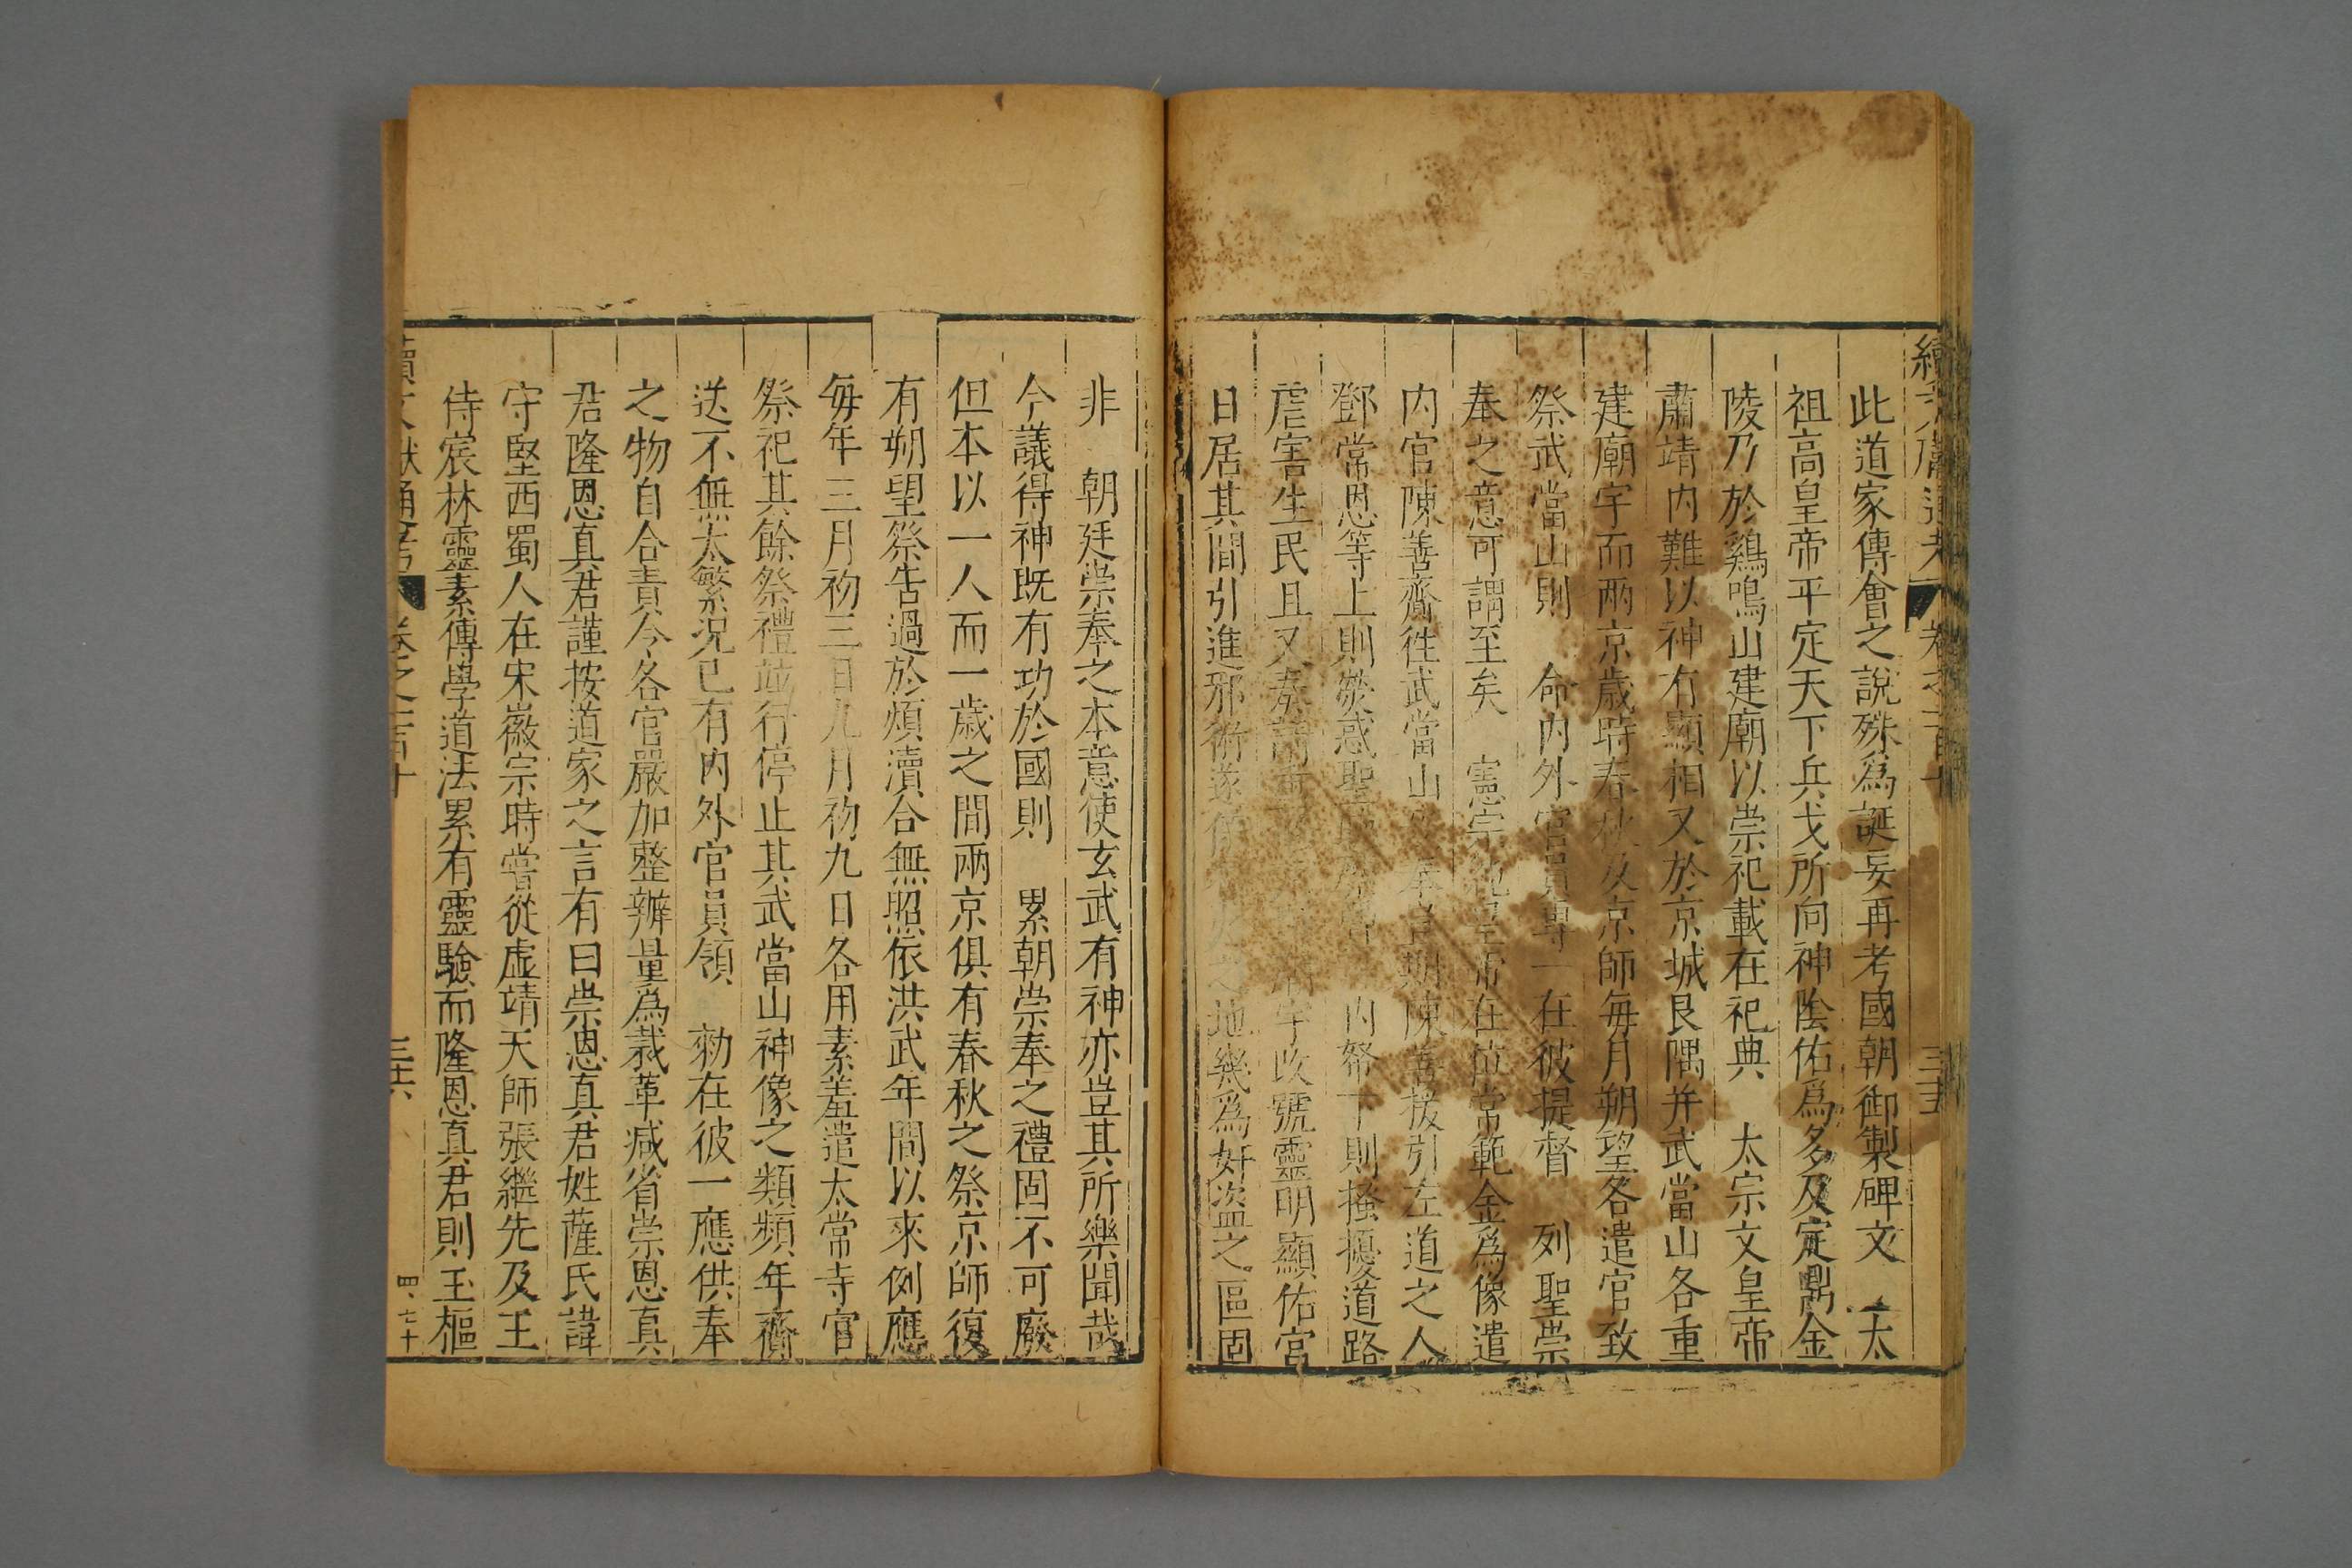 續文獻通考 卷之一百十 三十五
此道家傳會之說殊爲誕妄再考國朝御製碑文 太
祖高皇帝平定天下兵戈所向神陰佑爲多及定鼎金
陵乃於鷄鳴山建廟以崇祀載在祀典 太宗文皇帝
肅靖內難以神有顯相又於京城艮隅并武當山各重
建廟宇而两京歲時春秋及京師每月朔望各遣官致
祭武當山則 命內外官員專一在彼提督 列聖崇
奉之意可謂至矣 憲宗純皇帝在位常範金爲像遣
內官陳善齎徃武當山 期陳善援引左道之人
鄧常恩等上則熒惑聖 內帑下則搔擾道路
虐害生民且又奏請 宇改號靈明顯佑宮
日居其間引進邪術遂 之地幾爲奸盜之區固
非 朝廷崇奉之本意使玄武有神亦豈其所樂聞哉
今議得神既有功於國則 累朝崇奉之禮固不可廢
但本以一人而一歲之間兩京俱有春秋之祭京師復
有朔望祭告過於煩瀆合無照依洪武年間以來例應
每年三月初三日九月初九日各用素羞遣太常寺官
祭祀其餘祭禮並行停止其武當山神像之類頻年齎
送不無太繁況已有內外官員領 勑在彼一應供奉
之物自合責令各官嚴加整辦量爲裁革减省崇恩真
君隆恩真君謹按道家之言有曰崇恩真君姓薩氏諱
守堅西蜀人在宋徽宗時嘗從虛靖天師張繼先及王
侍宸林靈素傳學道法累有靈驗而隆恩真君則玉樞
續文獻通考 卷之一百十 三十六 四七十